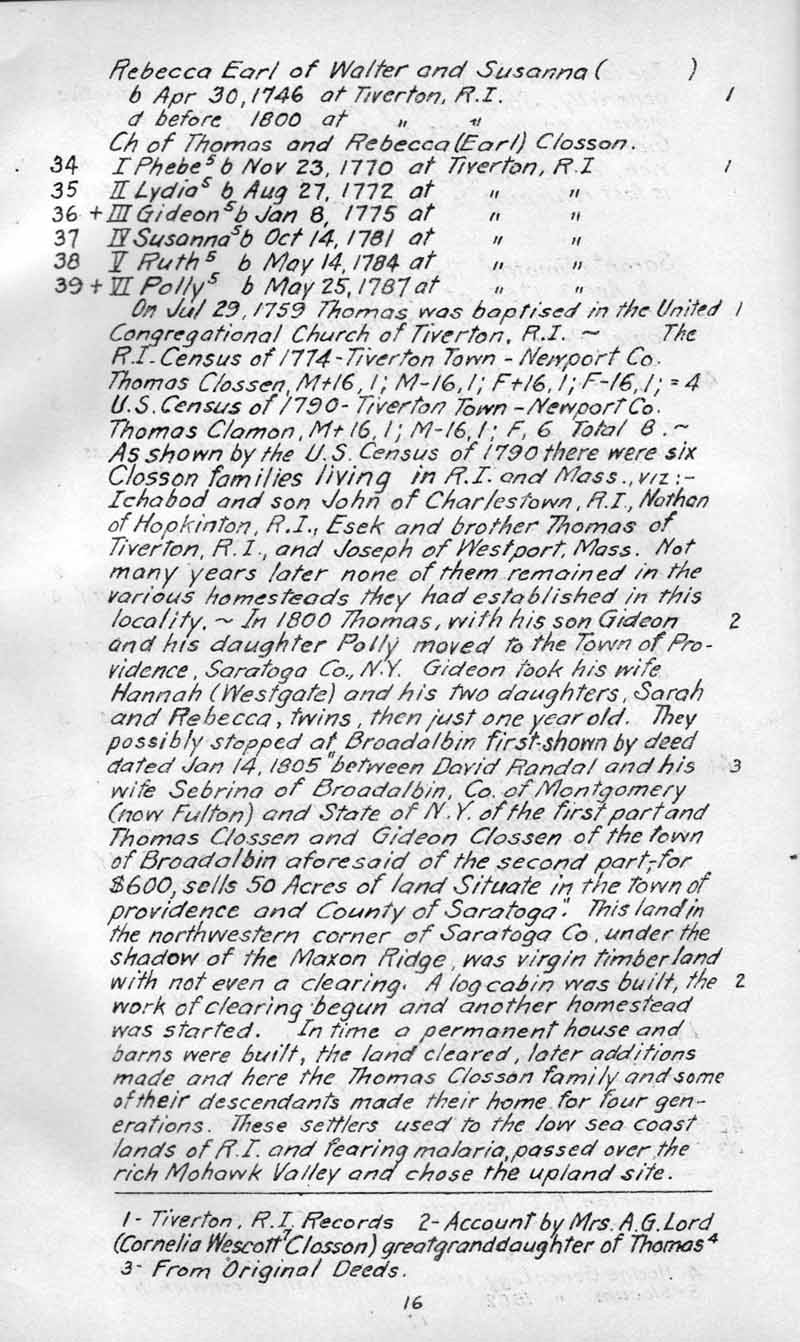 Rebecca Earl of Walter and Susanna (          )
b Apr 30, 1746 at Tiverton, R.I.     1
d before 1800 at    "    "
Ch of Thomas and Rebecca (Earl) Closson.
34 I Phebe⁵ b Nov 23, 1770 at Tiverton, R.I     1
35 II Lydia⁵ b Aug 27, 1772 at    "    "
36 + III Gideon⁵ b Jan 8, 1775 at    "    "
37 IV Susanna⁵ b Oct 14, 1781 at    "    "
38 V Ruth⁵ b May 14, 1784 at    "    "
39 + VI Polly⁵ b May 25, 1787 at    "    "
On Jul 29, 1759 Thomas was baptised in the United     1
Congregational Church of Tiverton, R.I. ~ The
R.I. Census of 1774 - Tiverton Town - Newport Co.
Thomas Clossen, M+16, 1; M-16, 1; F+16, 1; F-16, 1; = 4
U.S. Census of 1790 - Tiverton Town - Newport Co.
Thomas Clamon, M+ 16, 1; M-16, 1; F, 6 Total 8. ~
As shown by the U.S. Census of 1790 there were six
Closson families living in R.I. and Mass., viz:-
Ichabod and son John of Charlestown, R.I., Nathan
of Hopkinton, R.I., Esek and brother Thomas of
Tiverton, R.I., and Joseph of Westport, Mass. Not
many years later none of them remained in the
various homesteads they had established in this
locality. ~ In 1800 Thomas, with his son Gideon     2
and his daughter Polly moved to the Town of Pro-
vidence, Saratoga Co., N.Y. Gideon took his wife
Hannah (Westgate) and his two daughters, Sarah
and Rebecca, twins, then just one year old. They
possibly stopped at Broadalbin first-shown by deed
dated Jan 14, 1805 "between David Randal and his     3
wife Sebrina of Broadalbin, Co. of Montgomery
(now Fulton) and State of N.Y. of the first part and
Thomas Clossen and Gideon Clossen of the town
of Broadalbin aforesaid of the second part,-for
$600, sells 50 Acres of land Situate in the town of
providence and County of Saratoga". This land in
the northwestern corner of Saratoga Co, under the
shadow of the Maxon Ridge, was virgin timberland
with not even a clearing. A log cabin was built, the     2
work of clearing begun and another homestead
was started. In time a permanent house and
barns were built, the land cleared, later additions
made and here the Thomas Closson family and some
of their descendants made their home for four gen-
erations. These settlers used to the low sea coast
lands of R.I. and fearing malaria, passed over the
rich Mohawk Valley and chose the upland site.
1 - Tiverton, R.I. Records 2 - Account by Mrs. A.G. Lord
(Cornelia Wescott⁷ Closson) great granddaughter of Thomas⁴
3 - From Original Deeds.
16